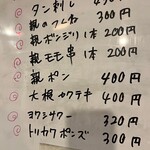 タン刺し
親のワレカ 300円
親ボンジリ 1本 200円
親モモ串 1本 200円
親ポン 400円
大根カクテキ 400円
ヨクミサワー 320円
トリカワポンズ 300円